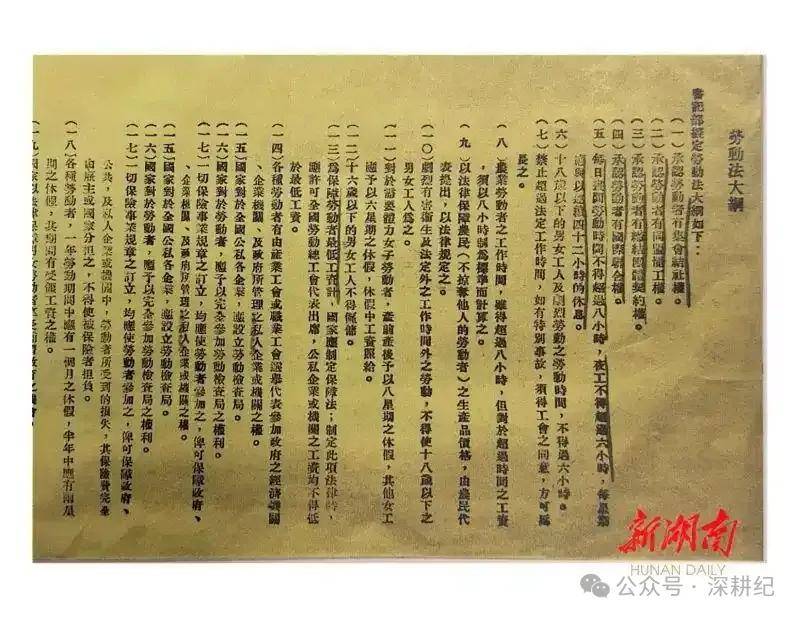 勞動法大綱
書記部擬定勞動法大綱如下：
（一）承認勞動者有集會結社權。
（二）承認勞動者有同盟罷工權。
（三）承認勞動者有締結團體契約權。
（四）承認勞動者有國際聯合權。
（五）每日晝間勞動時間不得超過八小時，夜工不得超過六小時，每星期
應與以連續四十二小時的休息。
（六）十八歲以下的男女工人及劇烈勞動之勞動時間，不得過六小時。
（七）禁止超過法定工作時間，如有特別事故，須得工會之同意，方可
長之。
（八）農業勞動者之工作時間，雖得超過八小時，但對於超過時間之工資
，須以八小時制為標準而計算之。
（九）以法律保障農民（不掠奪他人的勞動者）之生產品價格，由農民代
表提出，以法律規定之。
（一〇）劇烈有害衛生及法定外之工作時間外之勞動，不得使十八歲以下之
男女工人為之。
（一一）對於需要體力女子勞動者，產前產後予以八星期之休假，其他女工
應予以六星期之休假，休假中工資照給。
（一二）十六歲以下的男女工人不得僱傭。
（一三）為保障勞動者最低工資計，國家應制定保障法；制定此項法律時，
應許可全國勞動總工會代表出席，公私企業或機關之工資均不得低
於最低工資。
（一四）各種勞動者有由產業工會或職業工會選舉代表參加政府之經濟機關
、企業機關、及政府所管理之私人企業或機關之權。
（一五）國家對於全國公私各企業，應設立勞動檢查局。
（一六）國家對於勞動者，應予以完全參加勞動檢查局之權利。
（一七）一切保險事業規章之訂立，均應使勞動者參加之，俾可保障政府、
、企業機關、及政府所管理之私人企業或機關之權。
（一五）國家對於全國公私各企業，應設立勞動檢查局。
（一六）國家對於勞動者，應予以完全參加勞動檢查局之權利。
（一七）一切保險事業規章之訂立，均應使勞動者參加之，俾可保障政府、
公共，及私人企業或機關中，勞動者所受到的損失，其保險費完全
由雇主或國家分担之，不得使被保險者担負。
（一八）各種勞動者，一年勞動期間中應有一個月之休假，半年中應有兩星
期之休假，其期間有受領工資之權。
（一九）國家以法律
新湖南
HUNAN DAILY
公众号·深耕纪